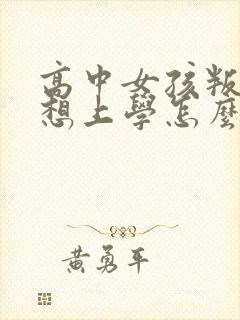 高中女孩叛
想上學怎麼
黃勇平